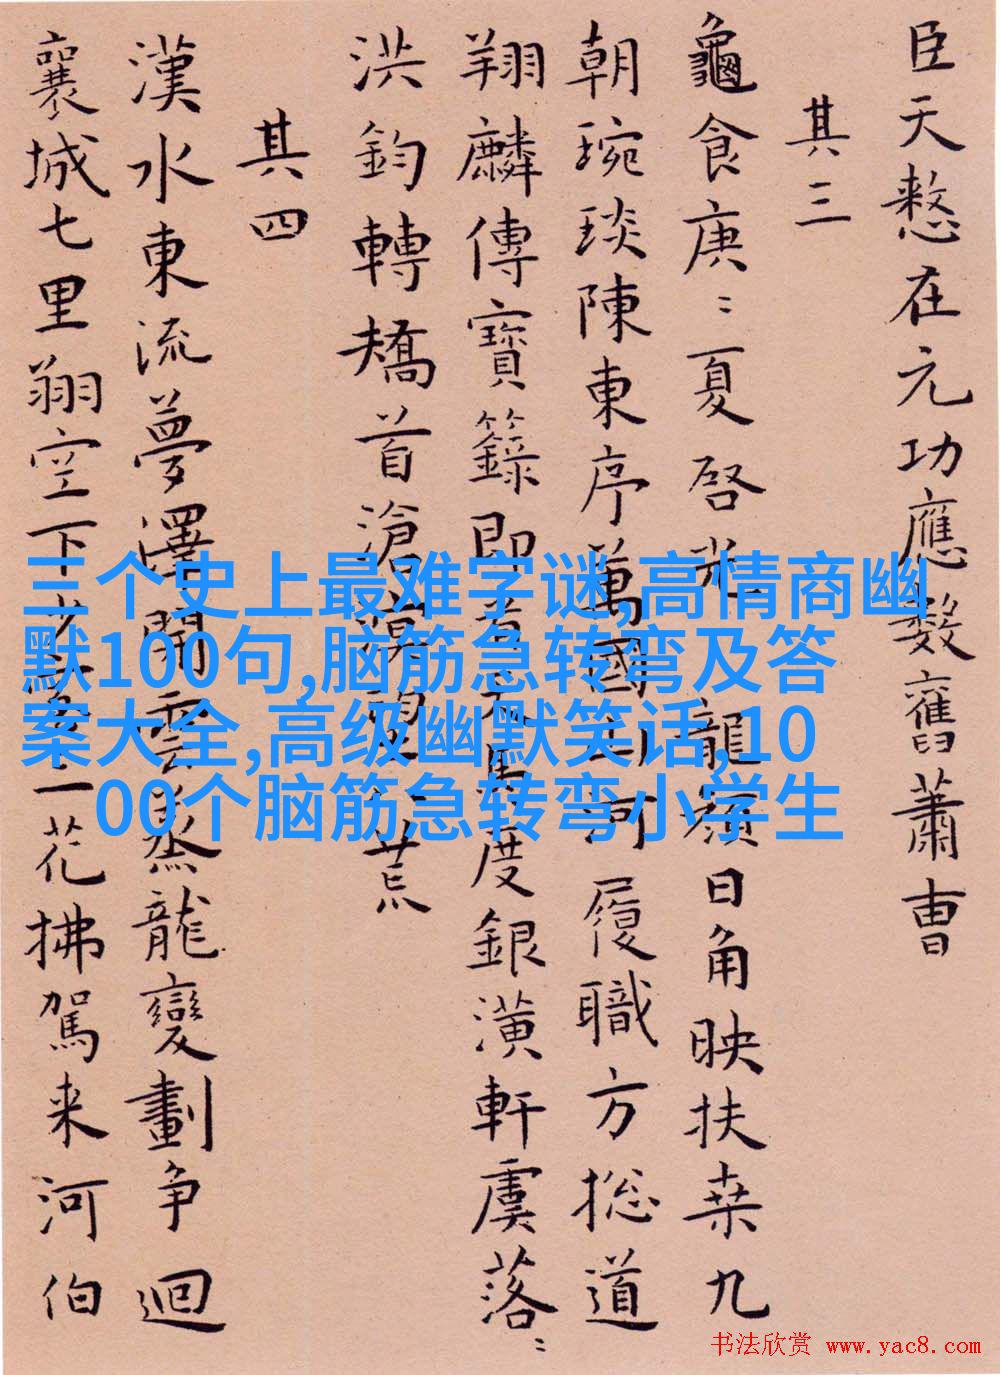 臣天憗在元功應數舊蕭曹
其三
龜食庚〻夏啓光龍顏日角映扶桒九
朝琬琰陳東序萬國山河履職方捴道
翔麟傳寶籙即看天馬度銀潢軒虞落〻
洪鈞轉矯首滄溟望八荒
其四
漢水東流夢澤開雲蒸龍變劃争迴
襄城七里翔空下少室三花拂駕来河伯
三个史上最难字谜,高情商幽
默100句,脑筋急转弯及答
案大全,高级幽默笑话,10
00个脑筋急转弯小学生
书法欣赏 www.yac8.com